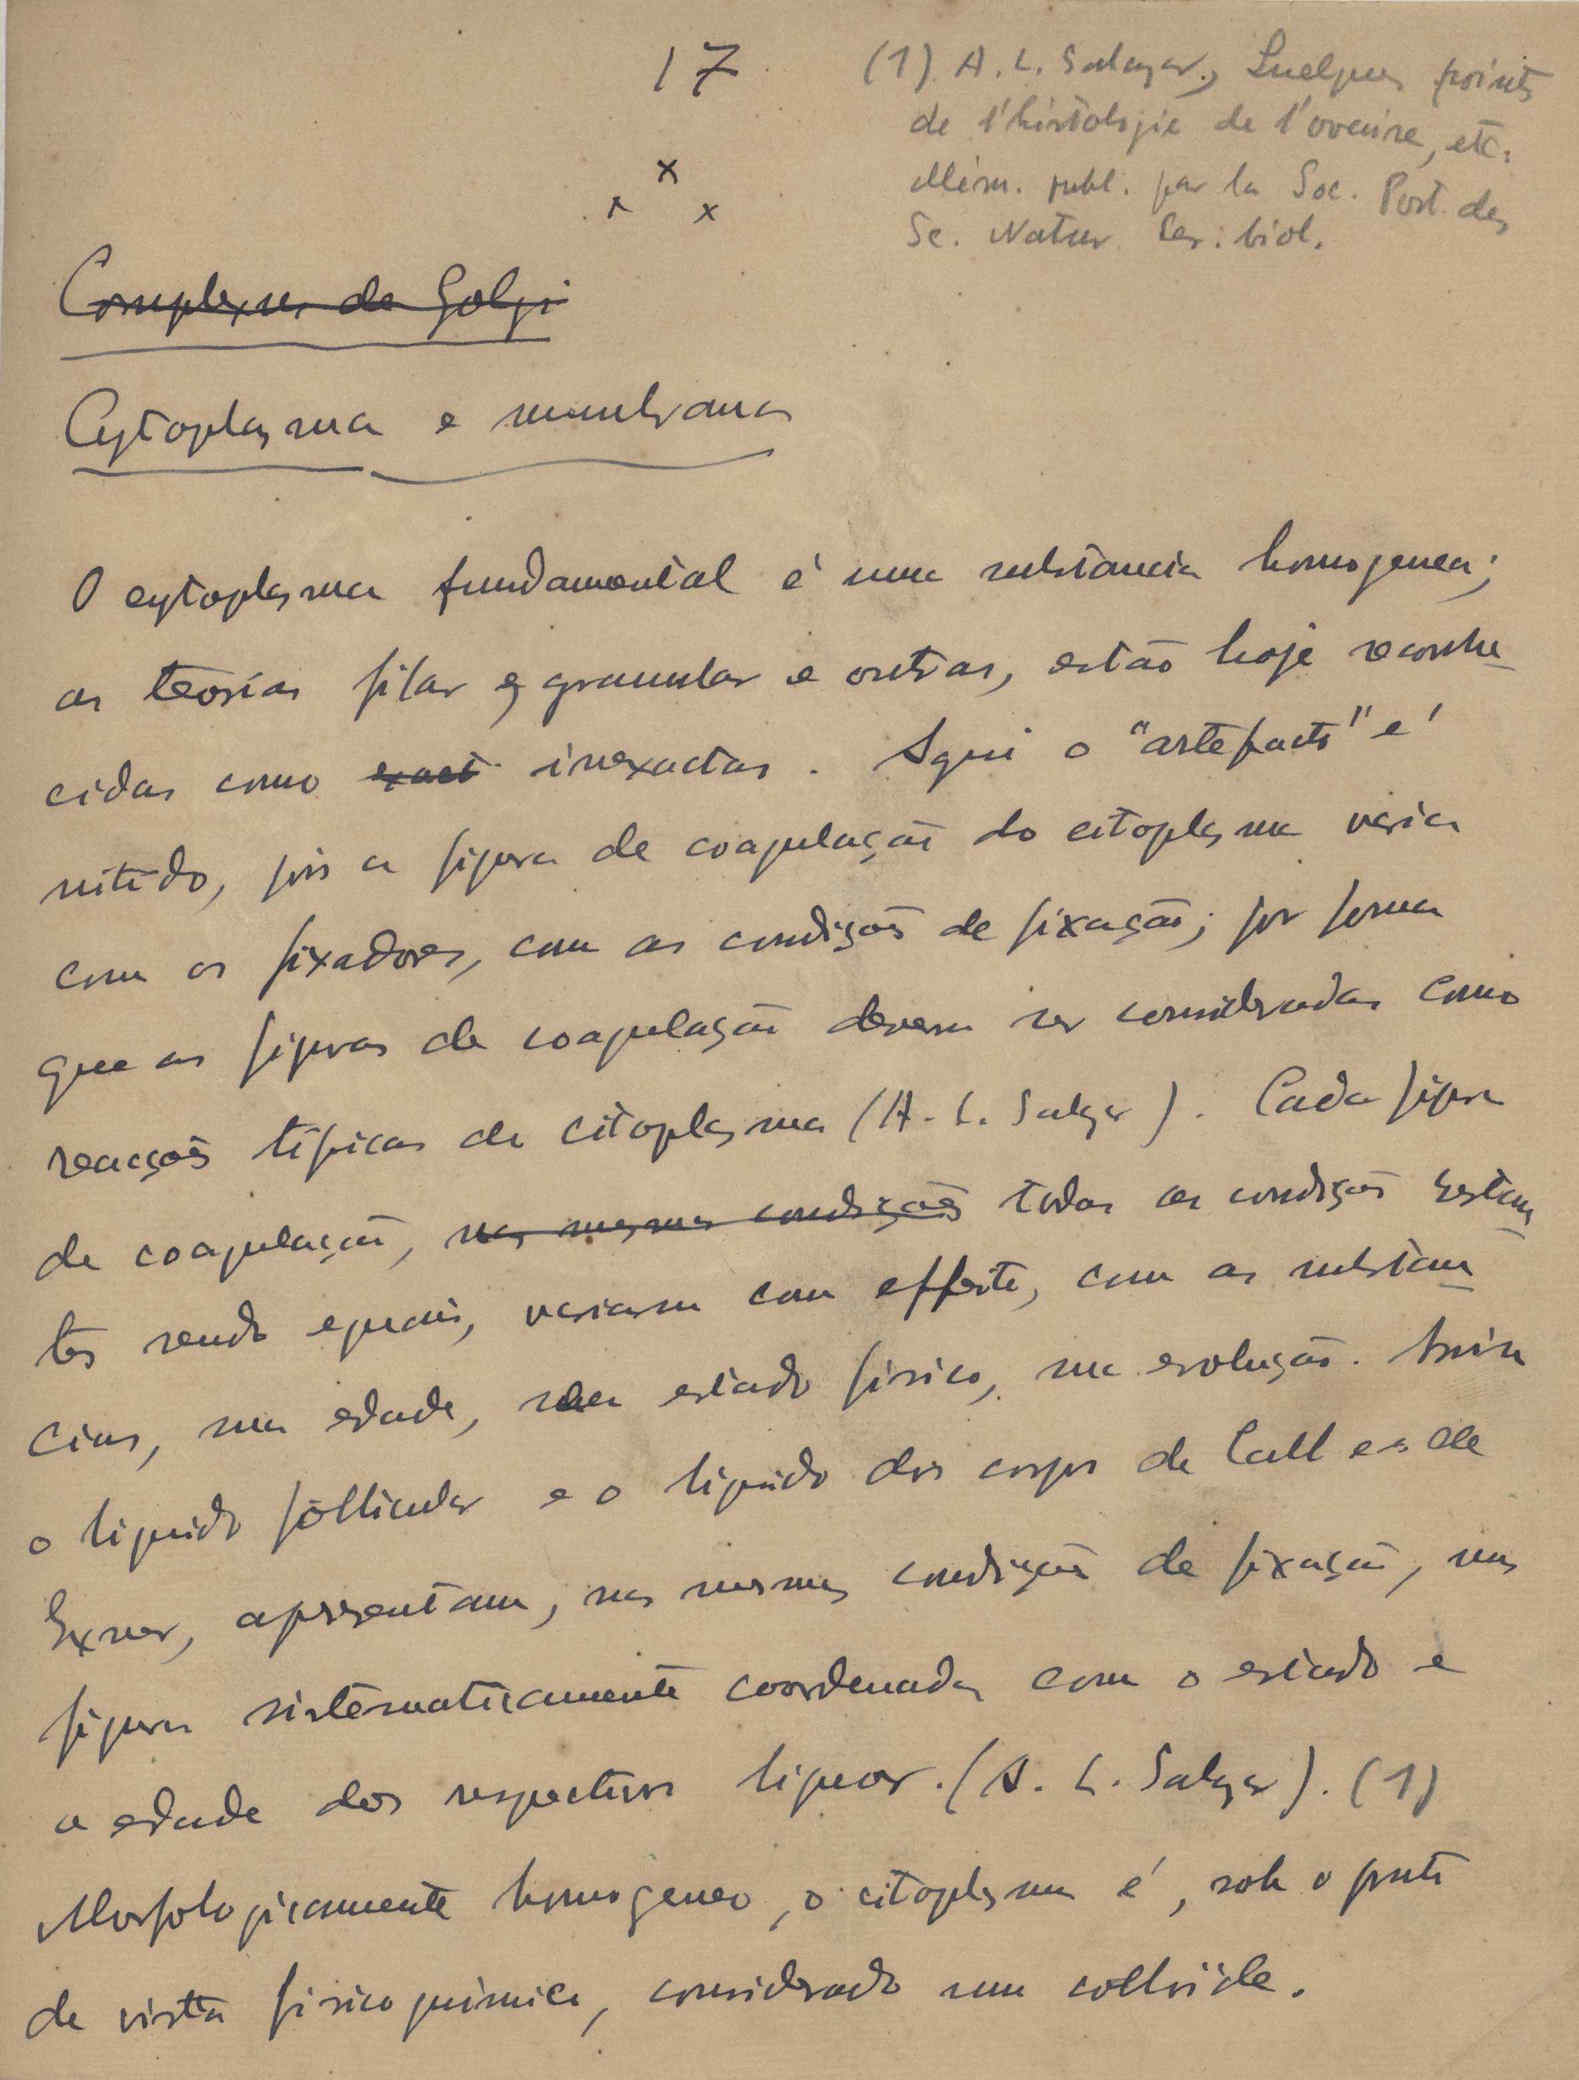 17
(1) A. L. Salazar, Quelques points
de l'histologie de l'ovaire, etc.
Mém. publ. par la Soc. Port. des
Sc. Natur. Ser. biol.
x
x x
Complexo de Golgi
Cytoplasma e membrana
O cytoplasma fundamental é uma substancia homogenea;
as teorias filar, granular e outras, estão hoje reconhe
cidas como exact inexactas. Aqui o "artefacto" é
nitido, pois a figura de coagulação do citoplasma varia
com os fixadores, com as condições de fixação; por forma
que as figuras de coagulação devem ser consideradas como
reacções tipicas do citoplasma (A. L. Salazar). Cada figura
de coagulação, nas mesmas condições todas as condições restan
tes sendo eguais, variam com effeito, com as substan
cias, sua edade, seu estado fisico, sua evolução. Assim
o liquido follicular e o liquido dos corpos de Call e de
Exner, apresentam, nas mesmas condições de fixação, uma
figura sistematicamente coordenada com o estado e
a edade dos respectivos liquor. (A. L. Salazar). (1)
Morfologicamente homogeneo, o citoplasma é, sob o ponto
de vista fisico quimico, considerado um colloide.